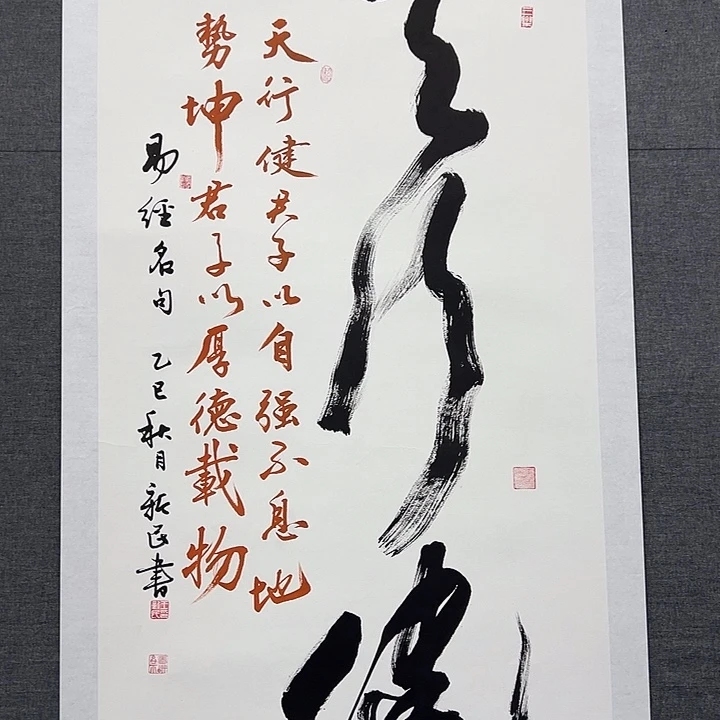 天行健
天行健君子以自强不息地
勢坤君子以厚德載物
易經名句 乙巳秋月新民書